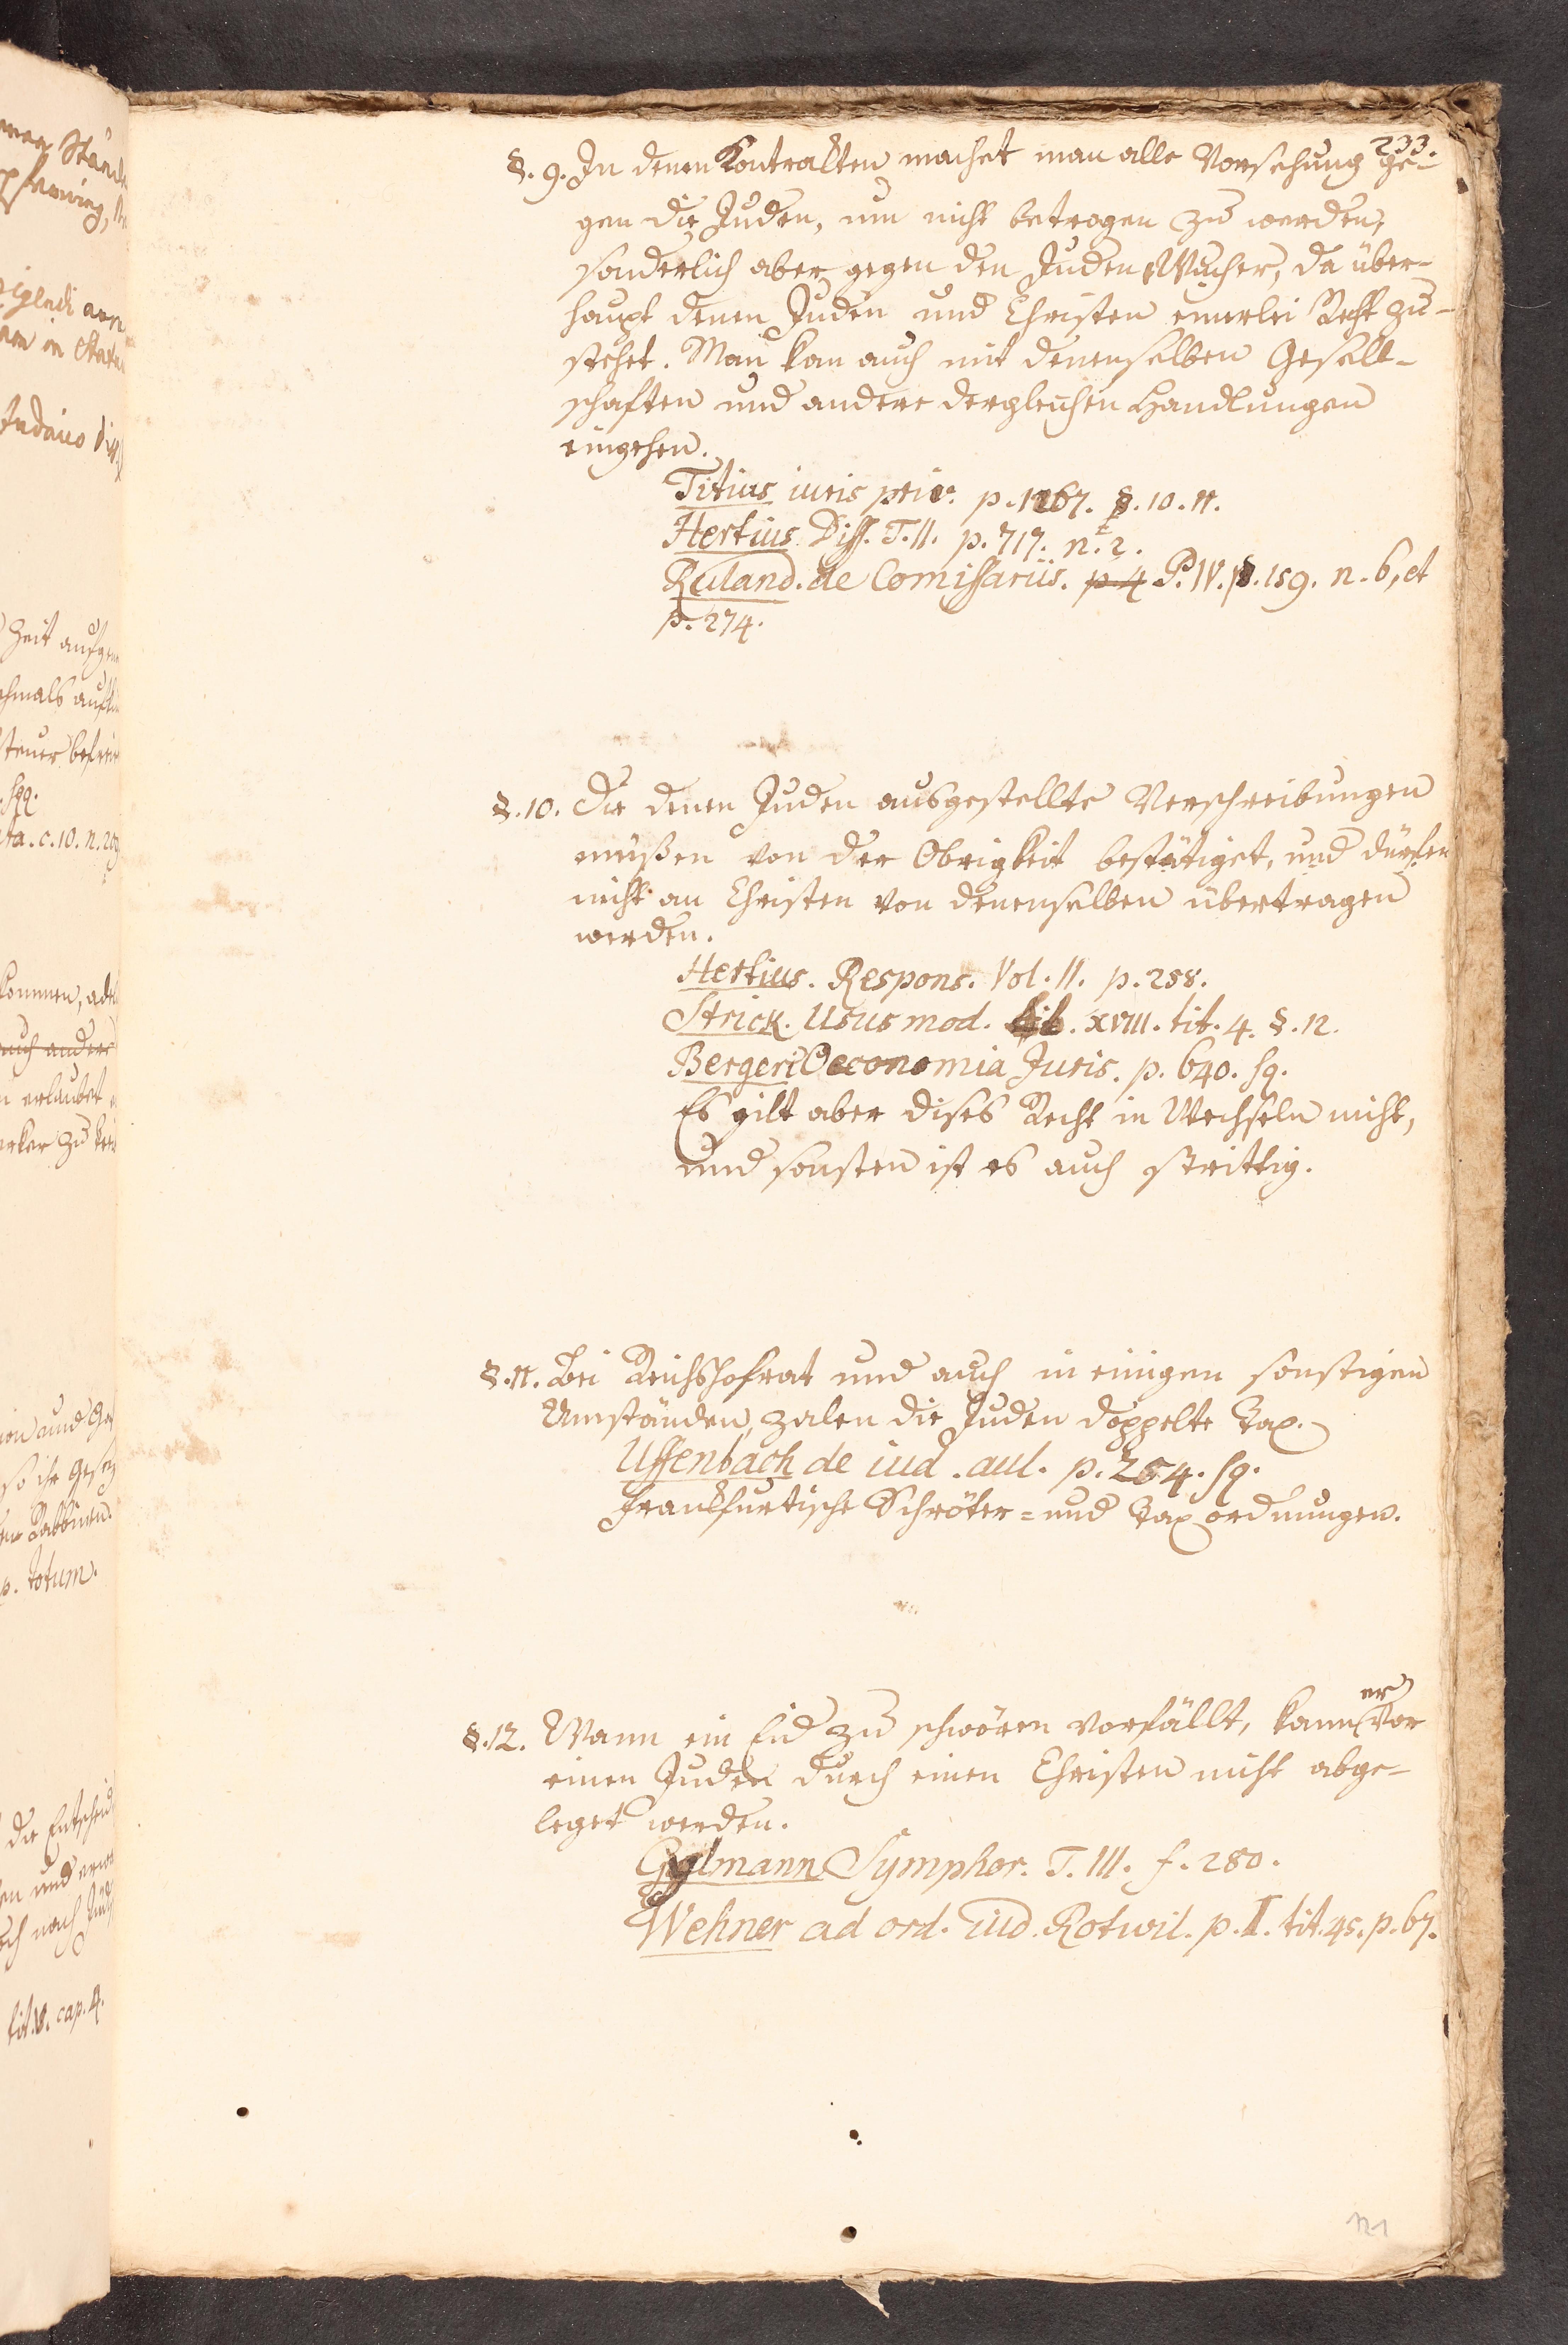 233.
§. 9. In denen Kontrakten machet man alle Vorsehung ge-
gen die Juden, um nicht betrogen zu werden,
sonderlich aber gegen den Juden Wucher, da über-
haupt denen Juden und Christen einerlei Recht zu-
stehet. Man kan auch mit denenselben Gesell-
schaften und andere dergleichen Handlungen
eingehen.
Titius iuris priv. p. 1267. §. 10. 11.
Hertius Diss. T. II. p. 717. n. 2.
Ruland. de Comissariis. p. 4 P. IV. p. 159. n. 6, et
p. 274.
§. 10. Die denen Juden ausgestellte Verschreibungen
müßen von der Obrigkeit bestätiget, und dürfen
nicht an Christen von denenselben übertragen
werden.
Hertius. Respons. Vol. II. p. 258.
Strick. Usus mod. lib. XVIII. tit. 4. §. 12.
Bergeri Oeconomia Juris. p. 640. sq.
Es gilt aber dises Recht in Wechseln nicht,
und sonsten ist es auch strittig.
§. 11. Bei Reichshofrat und auch in einigen sonstigen
Umständen, zalen die Juden doppelte Tax.
Uffenbach de iud. aul. p. 254. sq.
Frankfurtische Schröter= und Tax ordnungen.
§. 12. Wann ein Eid zu schwören vorfällt, kann er vor
einen Juden durch einen Christen nicht abge-
leget werden.
Gylmann Symphor. T. III. f. 280.
Wehner ad ord. iud. Rotwil. p. II. tit. 45. p. 67.
121